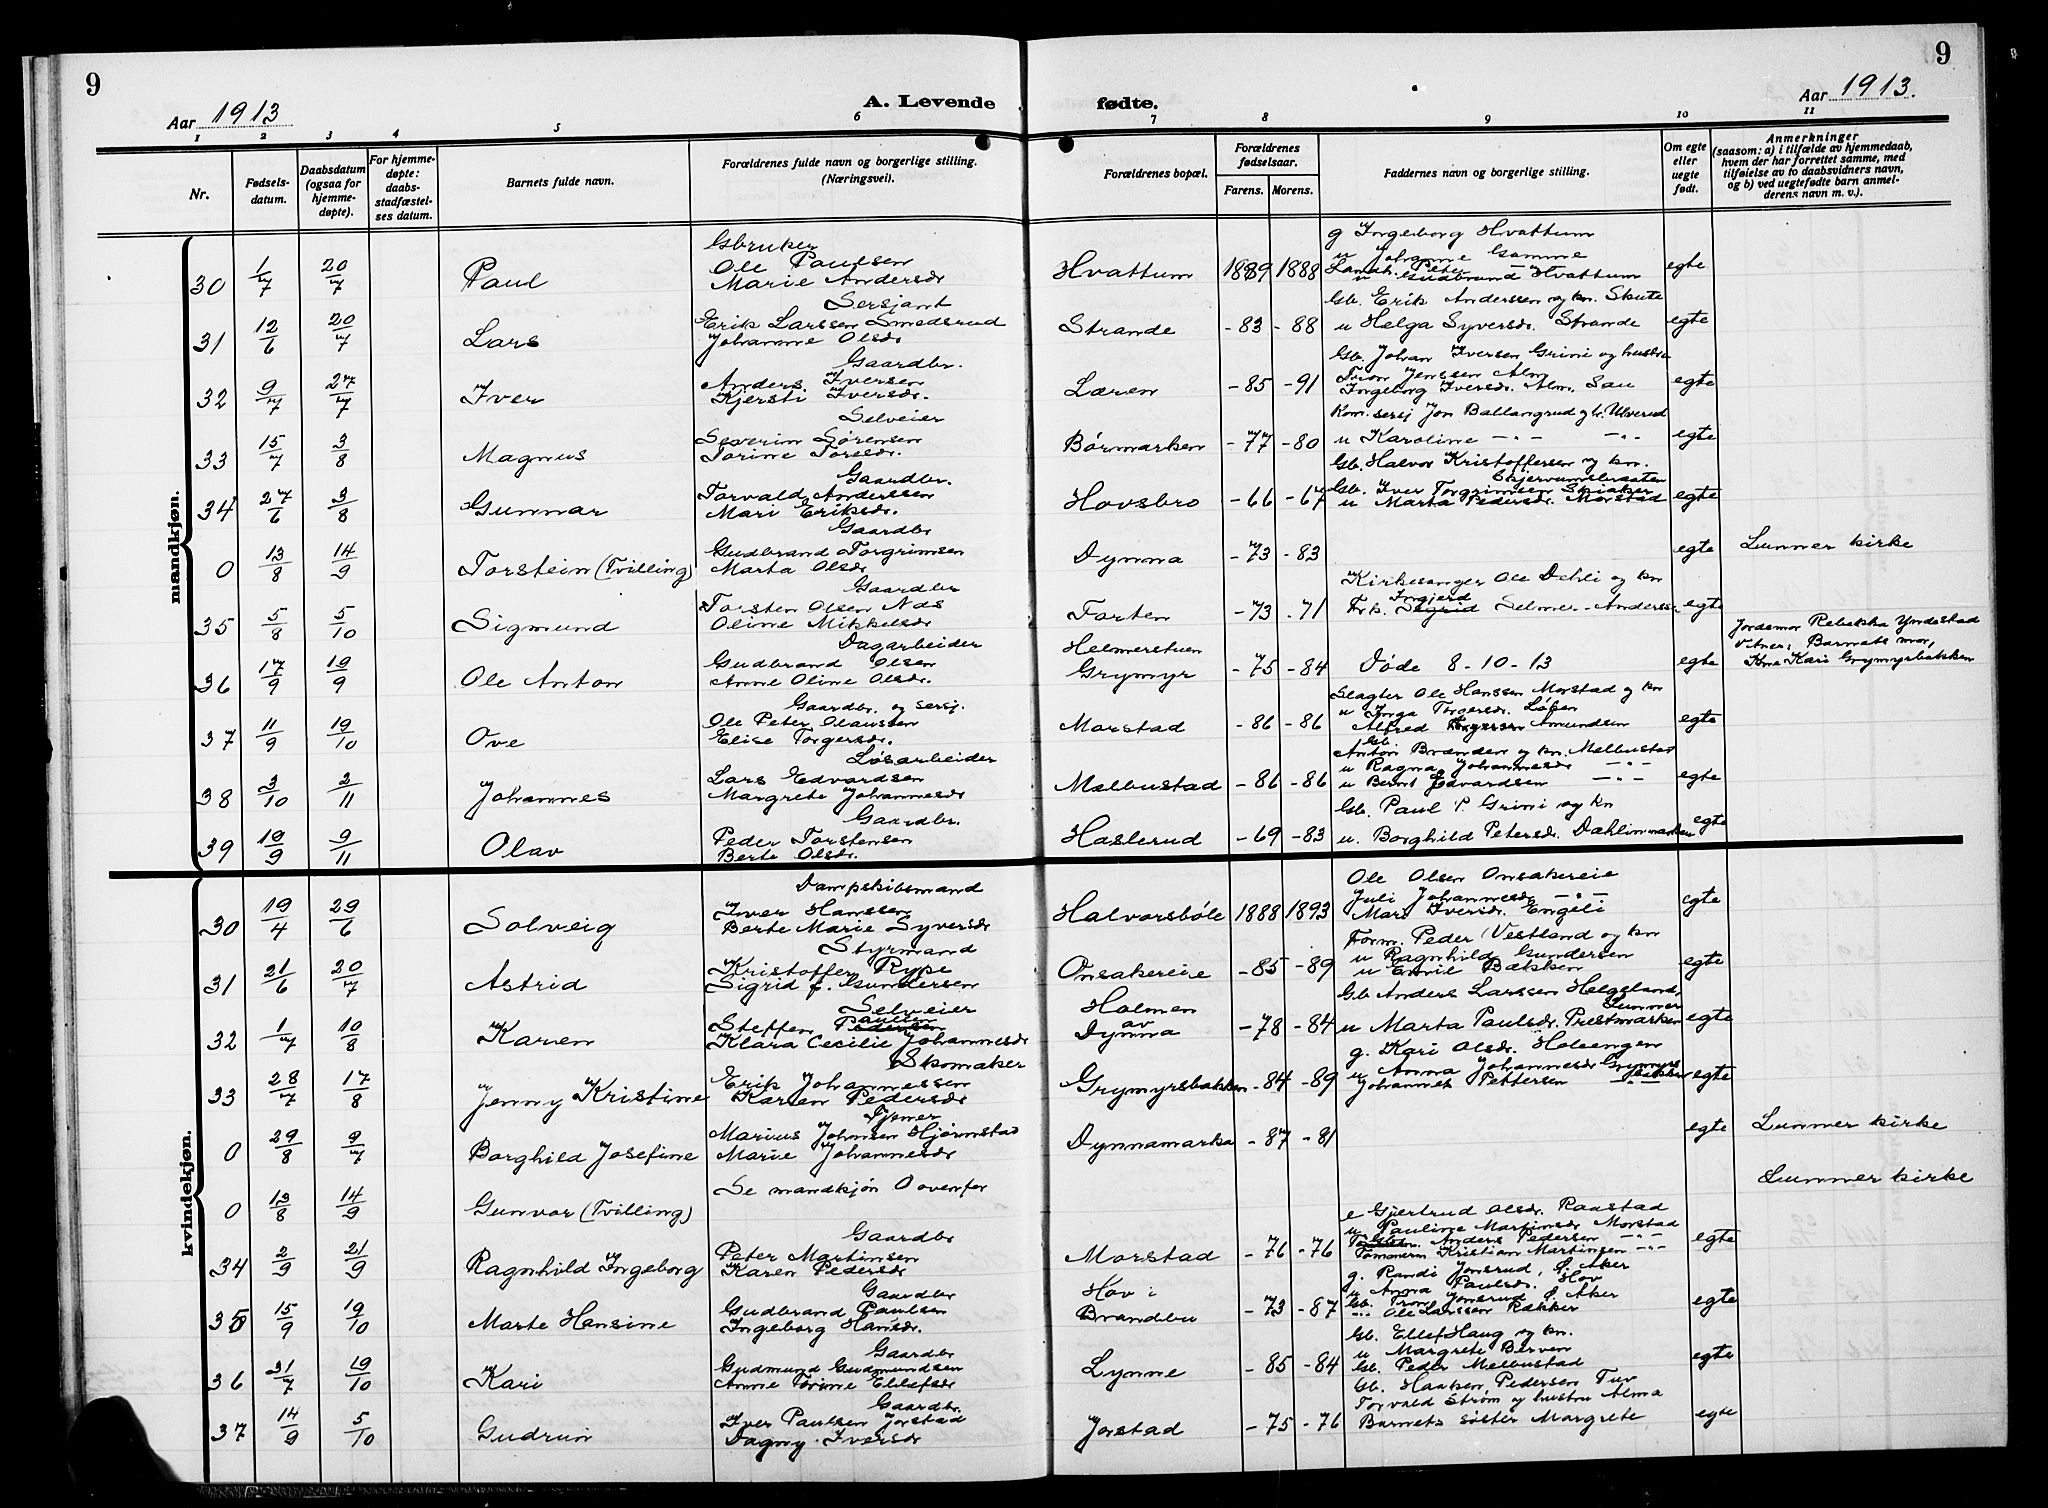 9
9
Aar 1913
A. Levende fødte.
Aar 1913.
1 2 3 4 5 6 7 8 9 10 11
Nr.
Fødsels-
datum.
Daabsdatum
(ogsaa for
hjemme-
døpte).
For hjemme-
døpte:
daabs-
stadfæstel-
ses datum.
Barnets fulde navn.
Forældrenes fulde navn og borgerlige stilling.
(Næringsvei).
Forældrenes bopæl.
Forældrenes
fødselsaar.
Farens. Morens.
Faddernes navn og borgerlige stilling.
Om egte
eller
uegte
født.
Anmerkninger
(saasom: a) i tilfælde av hjemmedaab,
hvem der har forrettet samme, med
tilføielse av to daabsvidners navn,
og b) ved uegtefødte barn anmel-
derens navn m. v.).
mandkjøn.
30 1/7 20/7 Paul
Gbruker
Ole Paulsen
Marie Andersdr
Hvattum 1889 1888
g Ingeborg Hvattum
u Johanne Gamme
Landh. Peter
u Gudbrund Hvattum
egte
31 12/6 20/7 Lars
Sersjant
Erik Larssen Smedsrud
Johanne Olsdr
Strande -83 -88
Gb. Erik Anderssen og kn. Skute
u Helga Syversdr. Strande
egte
32 9/7 27/7 Iver
Gaardbr.
Anders Iversen
Kjersti Iversdr.
Læren -85 -91
Gb. Johan Iversen Grini og hustru
Tron Jenssen Alm
Ingeborg Iversdr. Alm. Sau
egte
33 15/7 3/8 Magnus
Selveier
Severin Sørensen
Torine Toresdr.
Børmarken -77 -80
Kom. sersj Jon Ballangrud gbr. Ulverud
u Karoline -"- -"-
egte
34 27/6 3/8 Gunnar
Gaardbr.
Torvald Anderssen
Mari Eriksdr.
Hovsbro -66 -67
Gb. Halvor Kristoffersen og kn.
Skjervumsbraaten
Gb. Iver Torgrimsen Skiaker
u Marta Pedersdr. Morstad
egte
0 13/8 14/9 Torstein (Tvilling)
Gaardbr
Gudbrand Torgrimsen
Marta Olsdr
Dynna -73 -83
egte
Lunner kirke
35 5/8 5/10 Sigmund
Gaardbr
Torsten Olsen Næs
Oline Mikkelsdr
Forten -73 -71
Kirkesanger Ole Dehli og kn
Ingjerd
Frk. Sigrid Selmer-Anderss.
egte
36 17/9 19/9 Ole Anton
Dagarbeider
Gudbrand Olsen
Anne Oline Olsdr.
Helmerstuen
Grymyr -75 -84
Døde 8-10-13
egte
Jordemor Rebekka Yndestad
Vitner: Barnets mor,
Kone Kari Grymyrbakken
37 11/9 19/10 Ove
Gaardbr. og sersj.
Ole Peter Olaussen
Elise Torgersdr.
Morstad -86 -86
Slagter Ole Hanssen Morstad og kn
u Inga Torgersdr. Løken
Alfred Amundsen
egte
38 3/10 2/11 Johannes
Løsarbeider
Lars Edvardsen
Margrete Johannesdr
Melbustad -86 -86
Gb.
Anton Brænden og kn. Melbustad
u Ragna Johannesdr -"-
u Bernt Edvardsen -"-
egte
39 19/9 9/11 Olav
Gaardbr.
Peder Torstensen
Berte Olsdr.
Haslerud -69 -83
Gb. Paul P. Grini og kn
u. Borghild Petersdr. Dæhlinmarken
egte
kvindekjøn.
30 19/4 29/6 Solveig
Dampskibsmand
Iver Hanssen
Berte Marie Syversdr
Halvorsbøle 1888 1893
Ole Olsen Onsakereie
Juli Johannesdr -"-
Mari Iversdr. Engeli
egte
31 21/6 20/7 Astrid
Styrmand
Kristoffer Rype
Sigrid f. Gundersen
Onsakereie -85 -89
Form. Peder Vestland og kn
u Ragnhild Gundersen
u Emil Bakken
egte
32 1/7 10/8 Karen
Selveier
Paulsen
Steffen Pedersen
Klara Cecilie Johannesdr
Holmen
av
Dynna -78 -84
Gb Anders Larssen Helgeland,
Lunner
u Marta Paulsdr. Prestmarken
egte
33 28/7 17/8 Jenny Kristine
Skomaker
Erik Johannessen
Karen Pedersdr
Grymyrsbakken -84 -89
g. Kari Olsdr. Holsengen
u Anna Johannesdr Grymyrs
bakken
Johannes Pettersen -"-
egte
0 29/8 9/7 Borghild Josefine
Tjener
Marius Johnsen Hjørnstad
Marie Johannesdr
Dynnamarka -87 -81
egte
Lunner kirke
0 13/8 14/9 Gunvor (Tvilling)
Se mandkjøn 0 ovenfor
Lunner kirke
34 2/9 21/9 Ragnhild Ingeborg
Gaardbr
Peter Martinsen
Karen Pedersdr
Morstad -76 -76
e Gjertrud Olsdr. Raastad
u Pauline Martinsdr Morstad
Anders Pedersen -"-
Tømmerm Kristian Martinsen -"-
egte
35 15/9 19/10 Marte Hansine
Gaardbr
Gudbrand Paulsen
Ingeborg Hansdr.
Hov i
Brandbu -73 -87
g. Randi Jonsrud, Ø. Aker
u Anna Paulsdr. Hov
Gb. Tron Jonsrud Ø. Aker
-"- Ole Larssen Rækker
egte
36 31/7 19/10 Kari
Gaardbr
Gudmund Gudmundsen
Anne Torine Ellefsdr
Lynne -85 -84
Gb. Ellef Haug og kn.
u Margrete Berven
Gb. Peder Melbustad
egte
37 14/9 5/10 Gudrun
Gaardbr.
Iver Paulsen Jorstad
Dagny Iversdr
Jorstad -75 -76
Gb. Haaken Pedersen Tuv
Torvald Strøm og hustru Alma
Barnets søster Margrete
egte